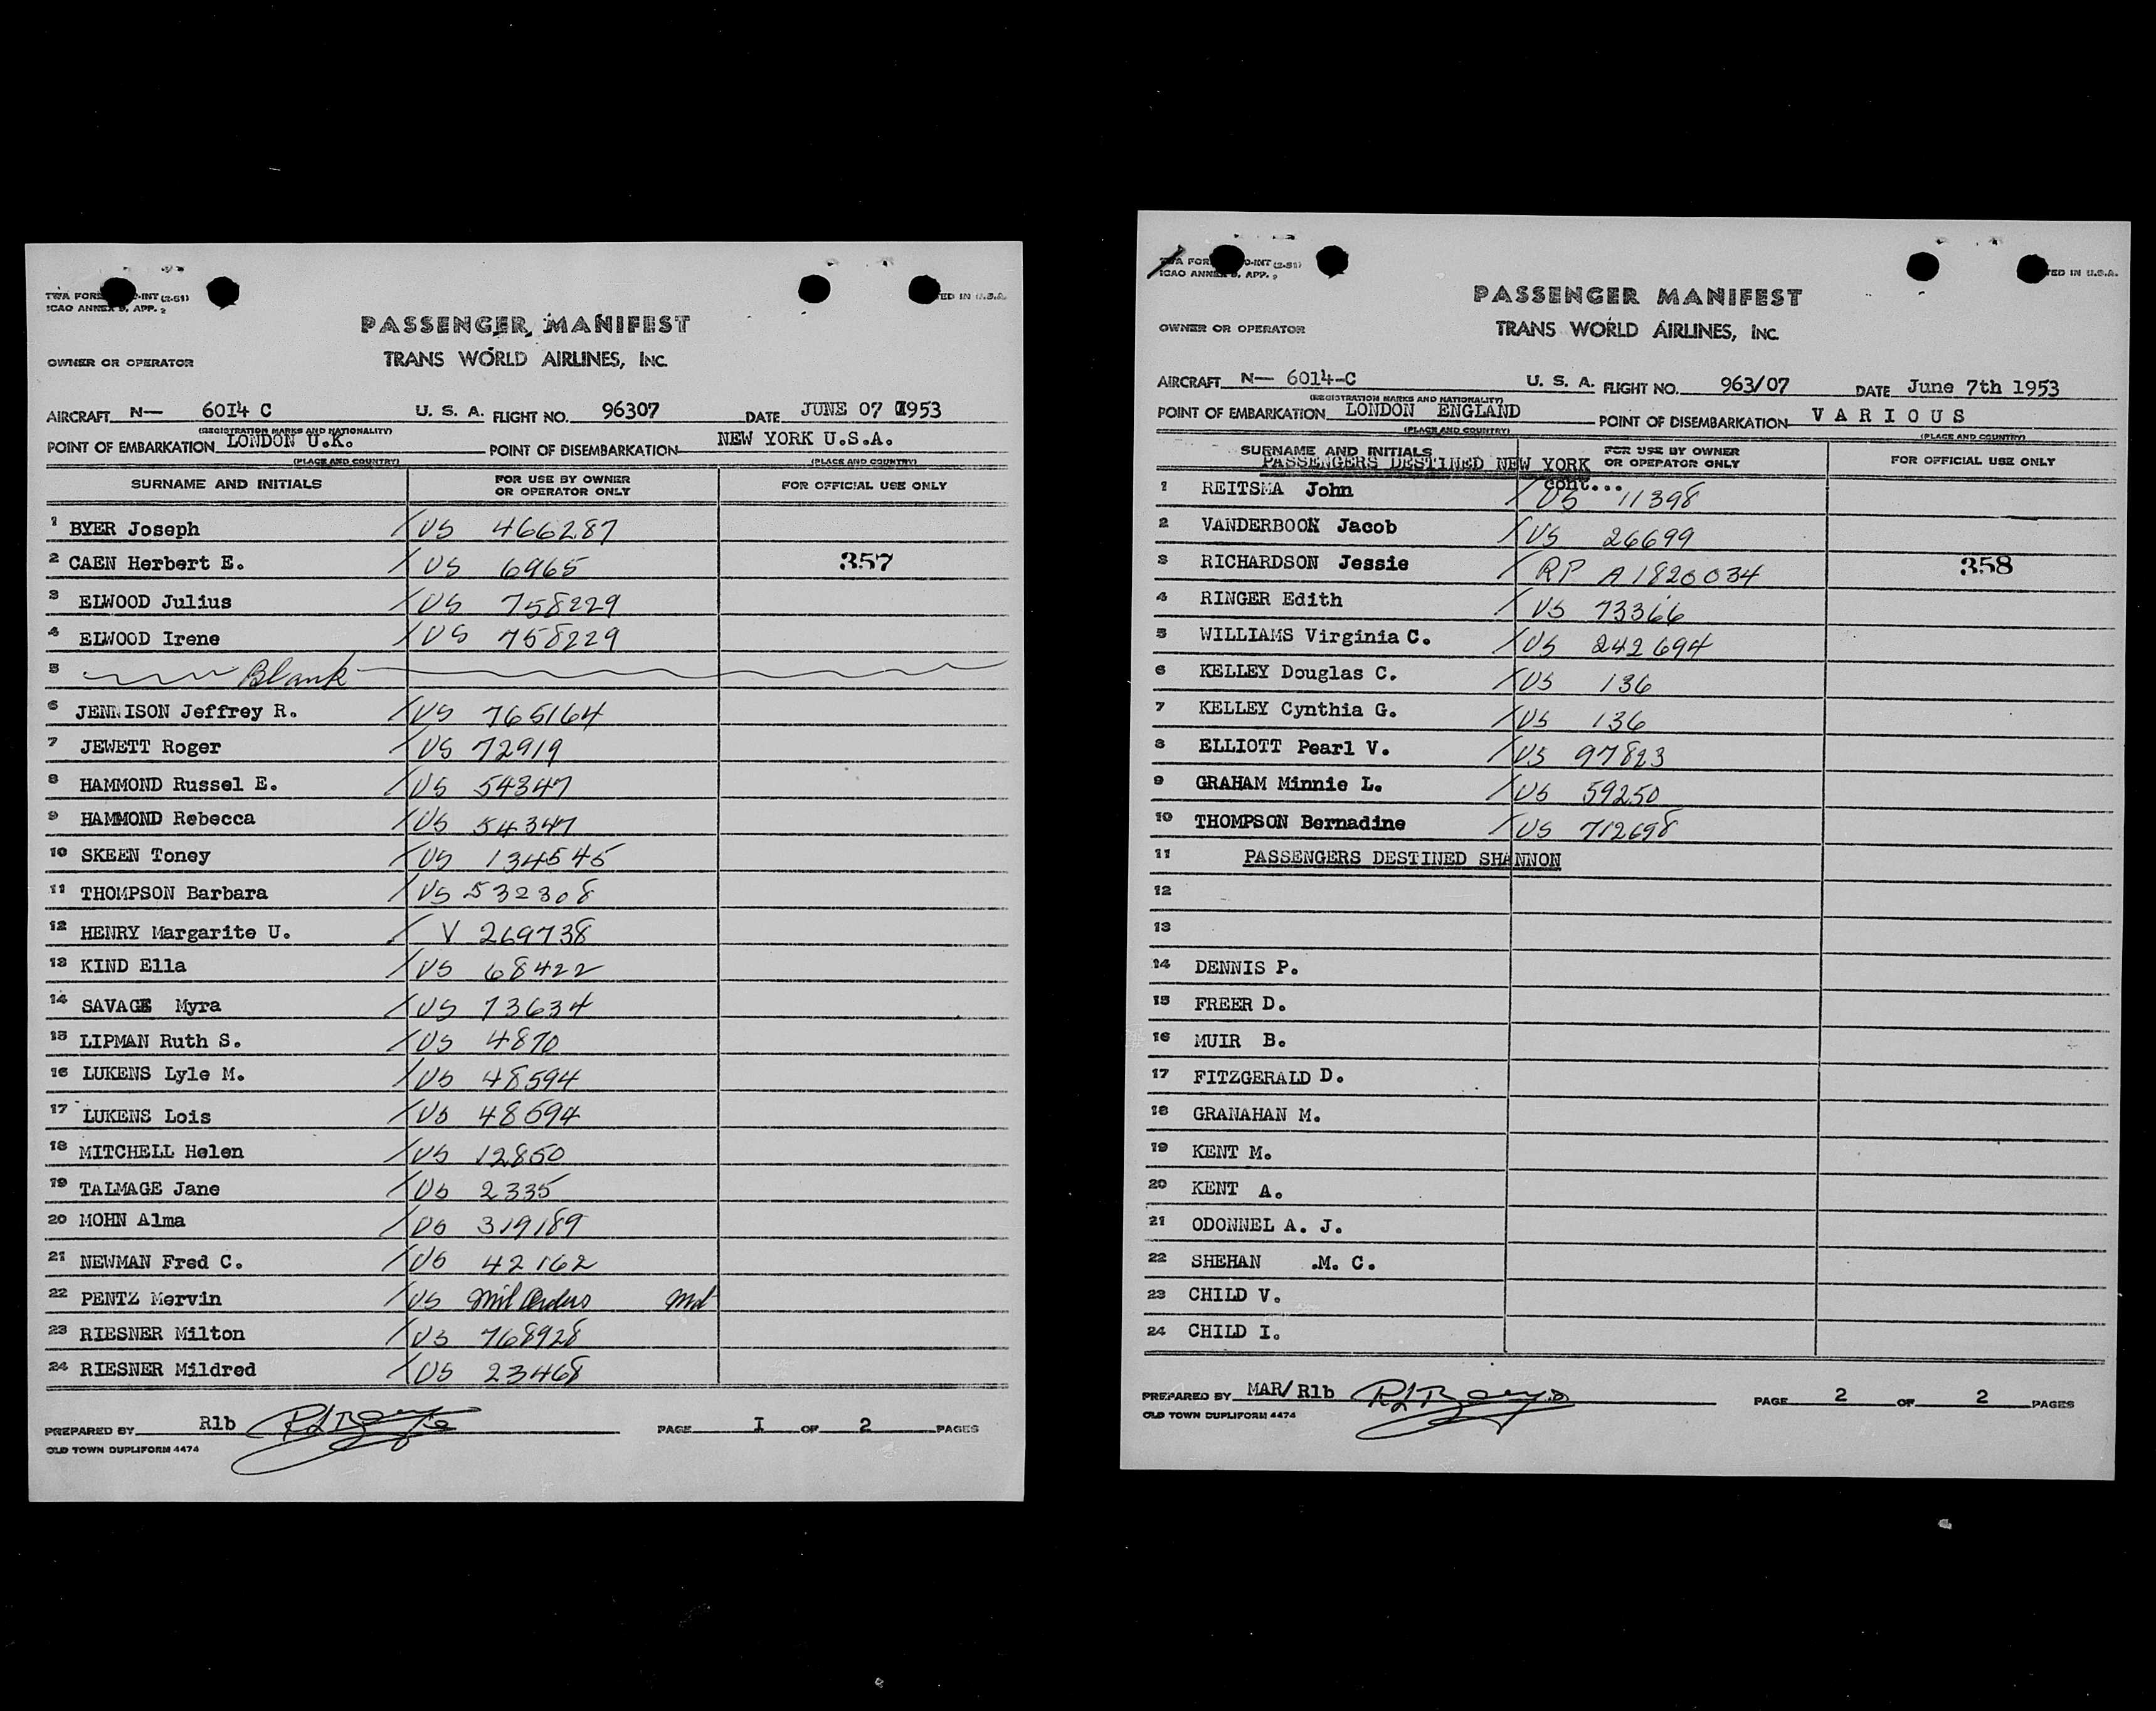 TWA FOR -INT (2-51)
ICAO ANNEX 9, APP. 2
ED IN U.S.A.
PASSENGER MANIFEST
OWNER OR OPERATOR TRANS WORLD AIRLINES, INC.
AIRCRAFT N— 6014 C U. S. A. FLIGHT NO. 96307 DATE JUNE 07 1953
(REGISTRATION MARKS AND NATIONALITY)
POINT OF EMBARKATION LONDON U.K. POINT OF DISEMBARKATION NEW YORK U.S.A.
(PLACE AND COUNTRY) (PLACE AND COUNTRY)
SURNAME AND INITIALS FOR USE BY OWNER OR OPERATOR ONLY FOR OFFICIAL USE ONLY
1 BYER Joseph / US 466287
2 CAEN Herbert E. / US 6965 357
3 ELWOOD Julius / US 758229
4 ELWOOD Irene / US 758229
5 Blank
6 JENNISON Jeffrey R. / US 765164
7 JEWETT Roger / US 72919
8 HAMMOND Russel E. / US 54347
9 HAMMOND Rebecca / US 54347
10 SKEEN Toney / US 134545
11 THOMPSON Barbara / US 532308
12 HENRY Margarite U. / V 269738
13 KIND Ella / US 68422
14 SAVAGE Myra / US 73634
15 LIPMAN Ruth S. / US 4870
16 LUKENS Lyle M. / US 48594
17 LUKENS Lois / US 48594
18 MITCHELL Helen / US 12850
19 TALMAGE Jane / US 2335
20 MOHN Alma / US 319189
21 NEWMAN Fred C. / US 42162
22 PENTZ Mervin / US Mil Orders
23 RIESNER Milton / US 768928
24 RIESNER Mildred / US 23468
PREPARED BY Rlb PAGE I OF 2 PAGES
OLD TOWN DUPLIFORM 4474
TWA FOR O-INT (2-51)
ICAO ANNEX 9, APP. 2
TED IN U.S.A.
PASSENGER MANIFEST
OWNER OR OPERATOR TRANS WORLD AIRLINES, INC.
AIRCRAFT N— 6014-C U. S. A. FLIGHT NO. 963/07 DATE June 7th 1953
(REGISTRATION MARKS AND NATIONALITY)
POINT OF EMBARKATION LONDON ENGLAND POINT OF DISEMBARKATION V A R I O U S
(PLACE AND COUNTRY) (PLACE AND COUNTRY)
SURNAME AND INITIALS FOR USE BY OWNER OR OPERATOR ONLY FOR OFFICIAL USE ONLY
PASSENGERS DESTINED NEW YORK cont...
1 REITSMA John / US 11398
2 VANDERBOOK Jacob / US 26699
3 RICHARDSON Jessie / RP A1820034 358
4 RINGER Edith / US 73366
5 WILLIAMS Virginia C. / US 242694
6 KELLEY Douglas C. / US 136
7 KELLEY Cynthia G. / US 136
8 ELLIOTT Pearl V. / US 97823
9 GRAHAM Minnie L. / US 59250
10 THOMPSON Bernadine / US 712698
11 PASSENGERS DESTINED SHANNON
12
13
14 DENNIS P.
15 FREER D.
16 MUIR B.
17 FITZGERALD D.
18 GRANAHAN M.
19 KENT M.
20 KENT A.
21 ODONNEL A. J.
22 SHEHAN .M. C.
23 CHILD V.
24 CHILD I.
PREPARED BY MAR/Rlb PAGE 2 OF 2 PAGES
OLD TOWN DUPLIFORM 4474